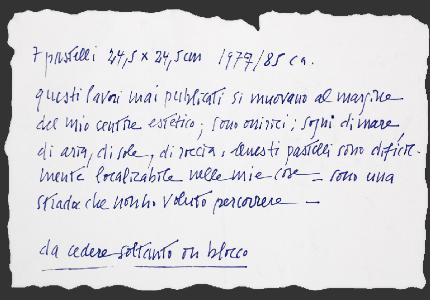 7 pastelli 24,5 x 24,5 cm 1977/85 ca.
questi lavori mai pubblicati si muovano al margine
del mio centro estetico; sono onirici; sogni di mare
di aria, di sole, di roccia. Questi pastelli sono difficil-
mente localizabile nelle mie cose – sono una
strada che non ho voluto percorrere –
da cedere soltanto in blocco